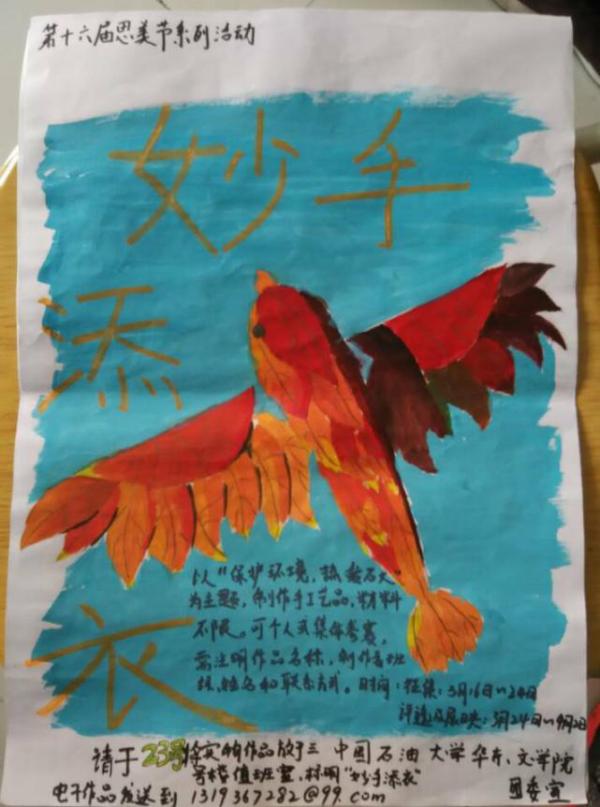 第十六届思美节系列活动
妙手
添
衣
以"保护环境,热爱石大"
为主题,制作手工艺品,材料
不限。可个人或集体参赛,
需注明作品名称,制作者班
级,姓名和联系方式。时间:征集:3月16日~24日
评选及展映:3月24日~4月2日
请于23号将实物作品放于三
号楼值班室,标明"妙手添衣"
电子作品发送到 1319367282@99.com
中国石油大学华东、文学院
团委宣